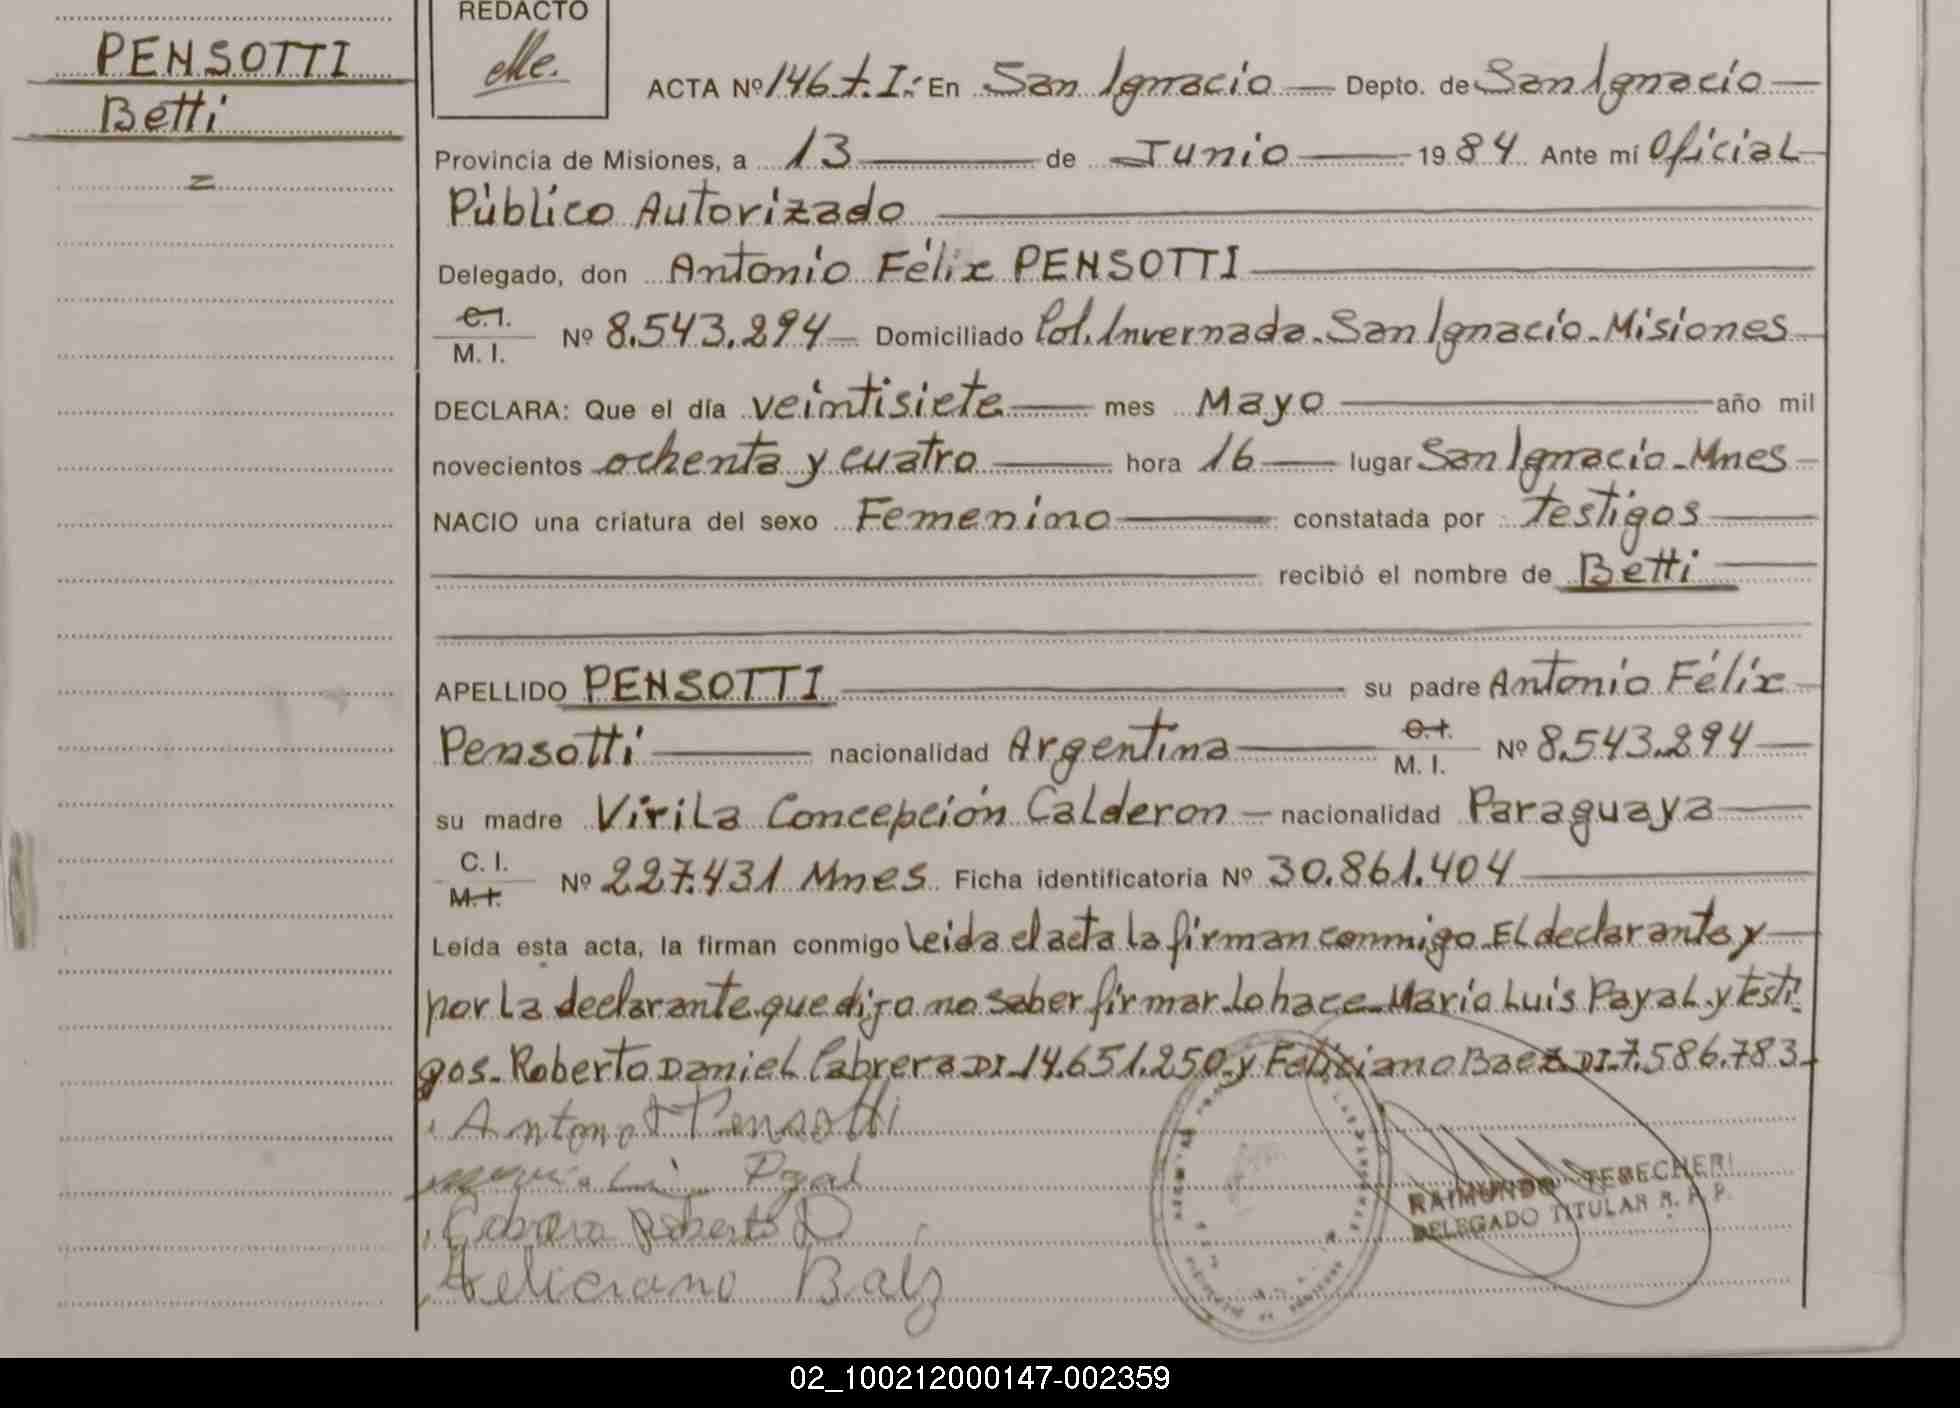 PENSOTTI
Betti
=
REDACTO
ACTA Nº 146 t. I: En San Ignacio — Depto. de San Ignacio —
Provincia de Misiones, a 13 — de Junio — 1984 Ante mí Oficial
Público Autorizado
Delegado, don Antonio Félix PENSOTTI
C.I.
M. I. Nº 8.543.294 — Domiciliado Col. Invernada - San Ignacio - Misiones
DECLARA: Que el día veintisiete — mes Mayo — año mil
novecientos ochenta y cuatro — hora 16 — lugar San Ignacio - Mnes
NACIO una criatura del sexo Femenino — constatada por testigos
recibió el nombre de Betti
APELLIDO PENSOTTI — su padre Antonio Félix
Pensotti — nacionalidad Argentina — C.I. M. I. Nº 8.543.294 —
su madre Virila Concepción Calderon — nacionalidad Paraguaya —
C. I.
M.I. Nº 227.431 Mnes. Ficha identificatoria Nº 30.861.404
Leída esta acta, la firman conmigo leida el acta la firman conmigo. El declarante y
por la declarante que dijo no saber firmar lo hace Mario Luis Payal y testi
gos. Roberto Daniel Cabrera DI. 14.651.250 y Feliciano Baez DI. 7.586.783
Antonio F Pensotti
Cabrera Roberto D
Feliciano Baez
RAIMUNDO TEBECHERI
DELEGADO TITULAR R. P. P.
02_100212000147-002359